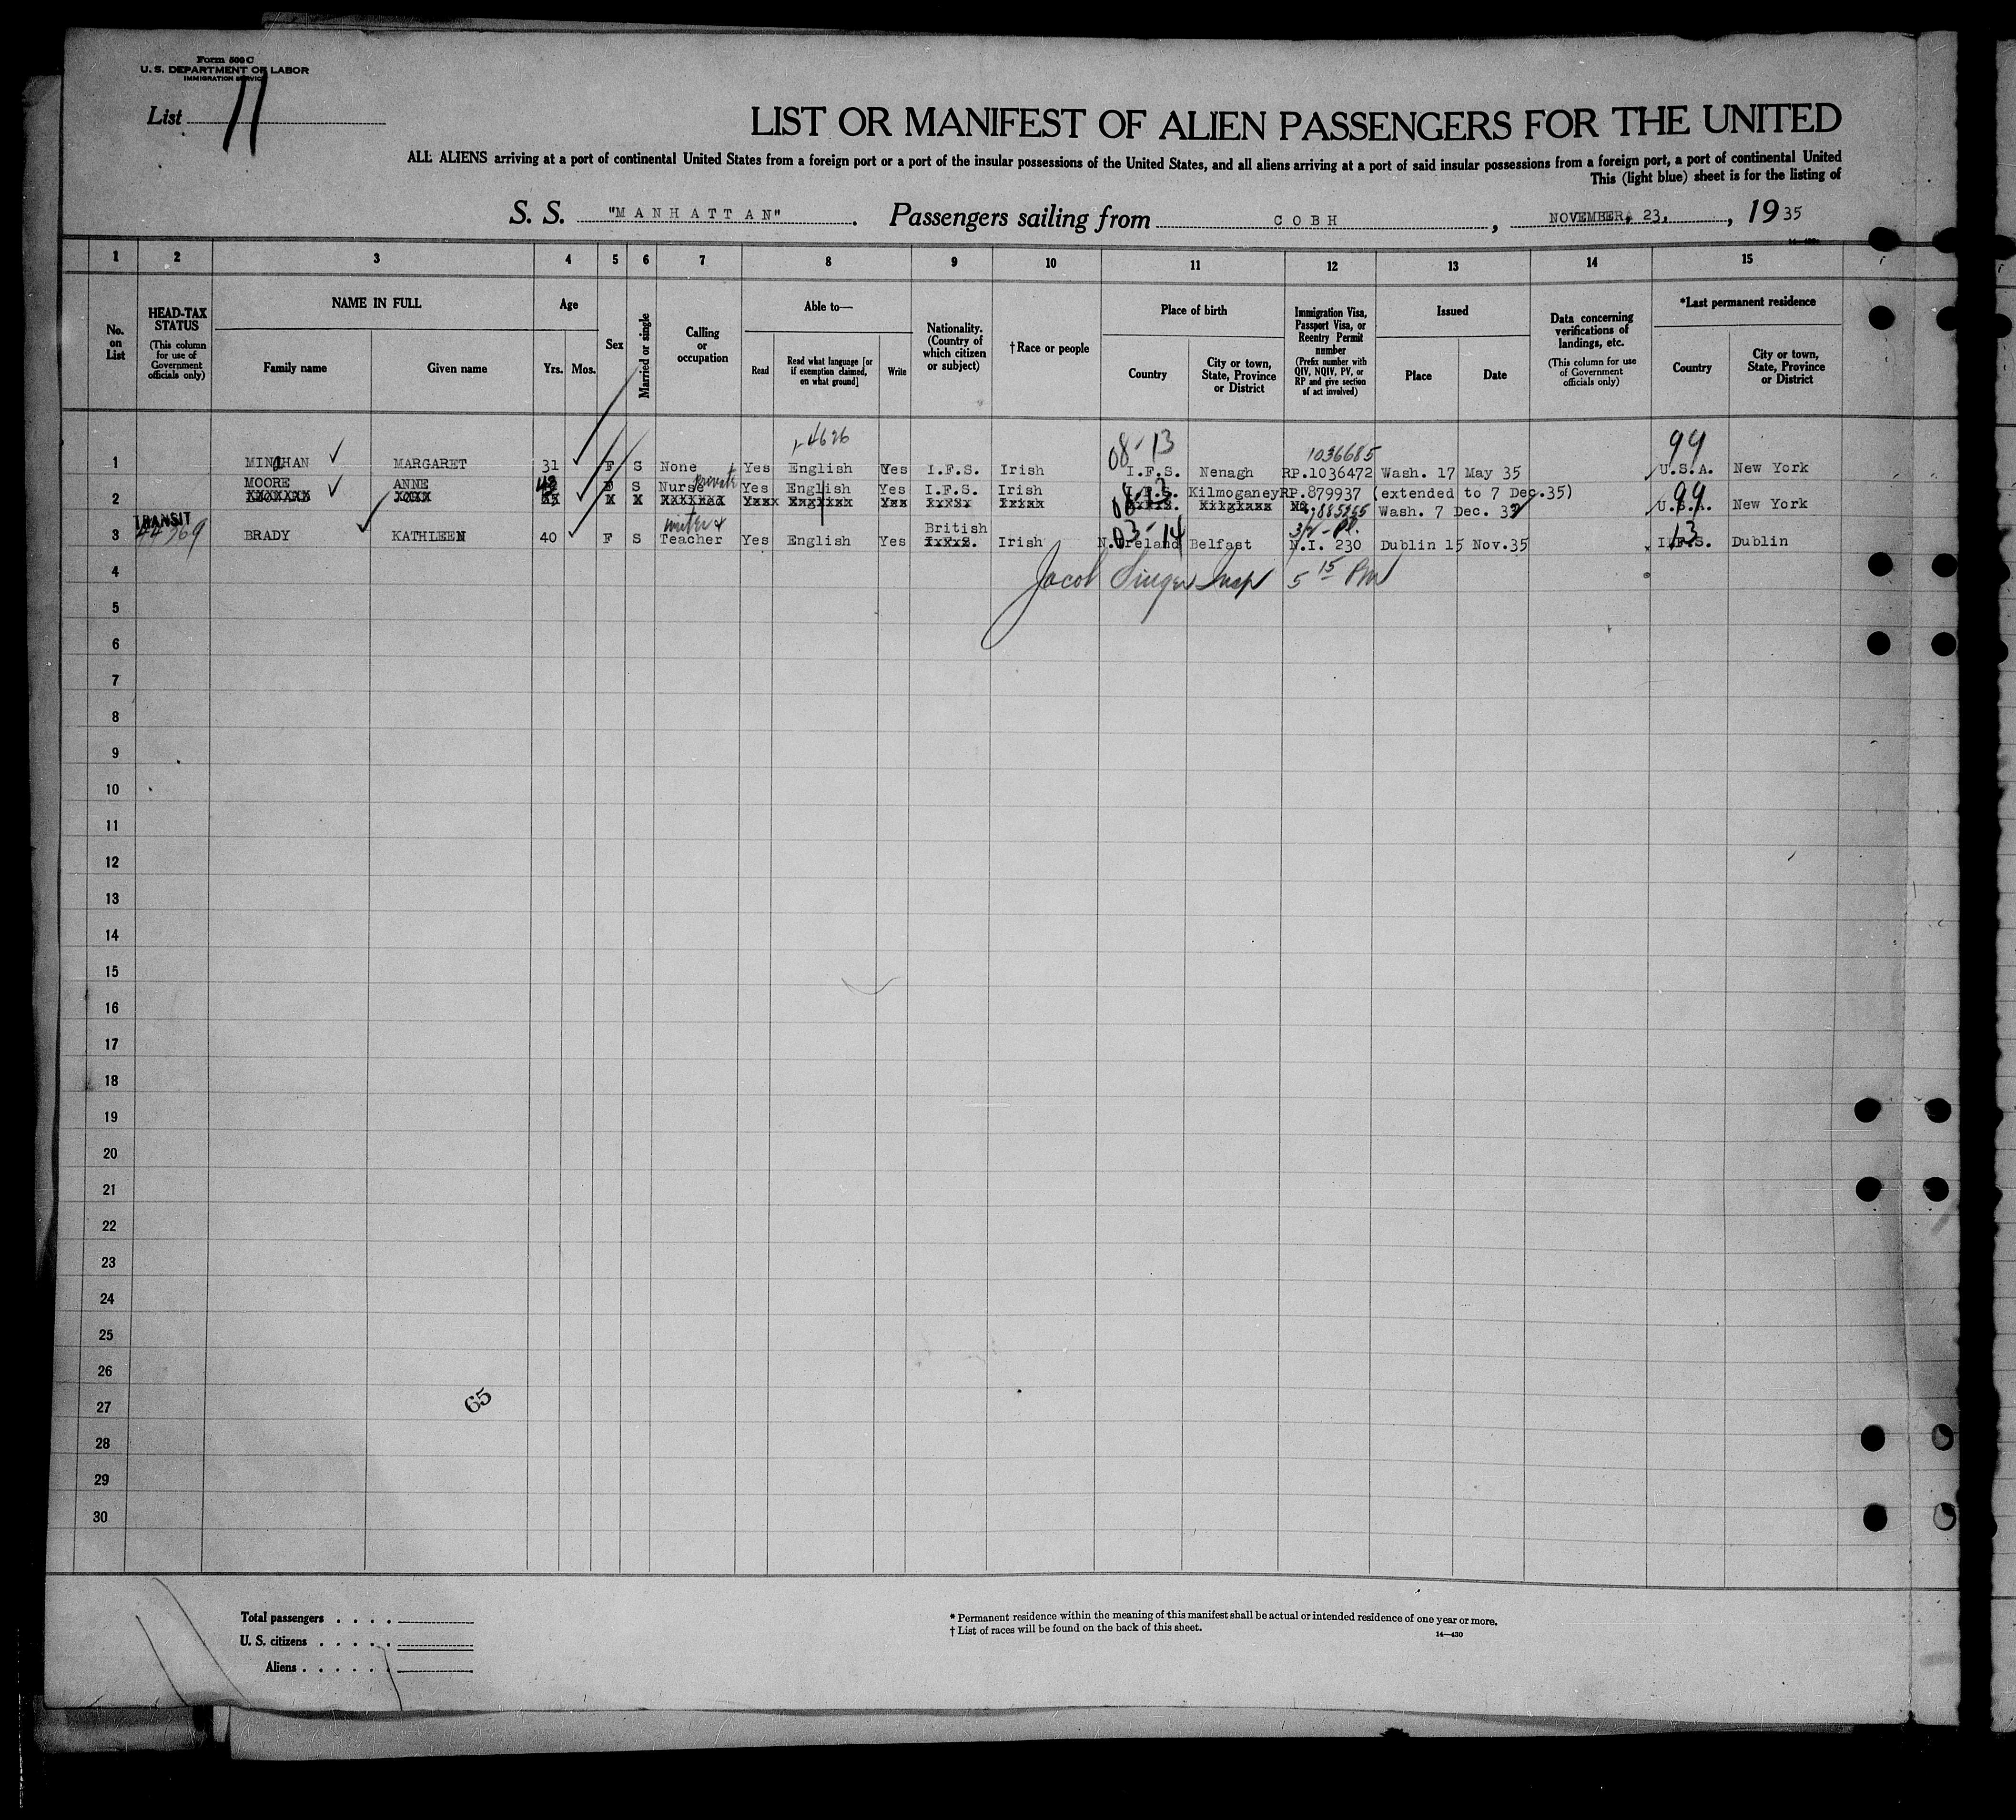 Form 500 C
U. S. DEPARTMENT OF LABOR
IMMIGRATION SERVICE
List 11
LIST OR MANIFEST OF ALIEN PASSENGERS FOR THE UNITED
ALL ALIENS arriving at a port of continental United States from a foreign port or a port of the insular possessions of the United States, and all aliens arriving at a port of said insular possessions from a foreign port, a port of continental United
This (light blue) sheet is for the listing of
S. S. "MANHATTAN". Passengers sailing from COBH, NOVEMBER, 23, , 1935
1 2 3 4 5 6 7 8 9 10 11 12 13 14 15
No. on List
HEAD-TAX STATUS
(This column for use of Government officials only)
NAME IN FULL
Family name
Given name
Age
Yrs. Mos.
Sex
Married or single
Calling or occupation
Able to—
Read
Read what language [or if exemption claimed, on what ground]
Write
Nationality. (Country of which citizen or subject)
†Race or people
Place of birth
Country
City or town, State, Province or District
Immigration Visa, Passport Visa, or Reentry Permit number
(Prefix number with QIV, NQIV, PV, or RP and give section of act involved)
Issued
Place
Date
Data concerning verifications of landings, etc.
(This column for use of Government officials only)
*Last permanent residence
Country
City or town, State, Province or District
4626 08-13 1036685 99
1 MINAHAN MARGARET 31 F S None Yes English Yes I.F.S. Irish I.F.S. Nenagh RP.1036472 Wash. 17 May 35 U.S.A. New York
MOORE ANNE S Nurse private Yes English Yes I.F.S. Irish I.F.S. Kilmoganey RP.879937 (extended to 7 Dec.35)
2 08-13 Wash. 7 Dec. 99 U.S.A. New York
TRANSIT
writer & British 03-14 13
3 BRADY KATHLEEN 40 F S Teacher Yes English Yes Irish N.Ireland Belfast N.I. 230 Dublin 15 Nov.35 I.F.S. Dublin
4 Jacob Singer Insp 5 15 PM
5
6
7
8
9
10
11
12
13
14
15
16
17
18
19
20
21
22
23
24
25
26
27
65
28
29
30
Total passengers . . . .
U. S. citizens . . . . .
Aliens . . . . . .
* Permanent residence within the meaning of this manifest shall be actual or intended residence of one year or more.
† List of races will be found on the back of this sheet.
14—430